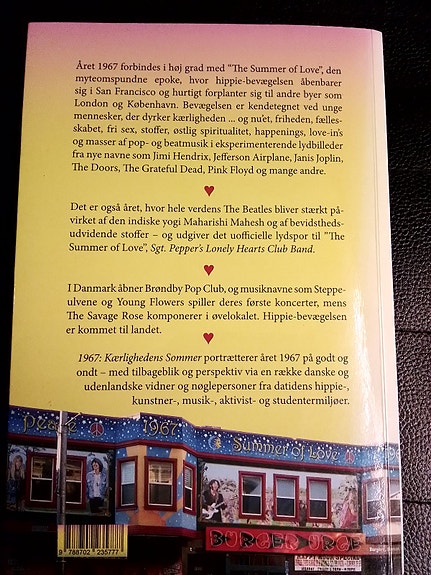 Året 1967 forbindes i høj grad med "The Summer of Love", den
myteomspundne epoke, hvor hippie-bevægelsen åbenbarer
sig i San Francisco og hurtigt forplanter sig til andre byer som
London og København. Bevægelsen er kendetegnet ved unge
mennesker, der dyrker kærligheden ... og nu'et, friheden, fælles-
skabet, fri sex, stoffer, østlig spiritualitet, happenings, love-in's
og masser af pop- og beatmusik i eksperimenterende lydbilleder
fra nye navne som Jimi Hendrix, Jefferson Airplane, Janis Joplin,
The Doors, The Grateful Dead, Pink Floyd og mange andre.
Det er også året, hvor hele verdens The Beatles bliver stærkt på-
virket af den indiske yogi Maharishi Mahesh og af bevidstheds-
udvidende stoffer – og udgiver det uofficielle lydspor til "The
Summer of Love", Sgt. Pepper's Lonely Hearts Club Band.
I Danmark åbner Brøndby Pop Club, og musiknavne som Steppe-
ulvene og Young Flowers spiller deres første koncerter, mens
The Savage Rose komponerer i øvelokalet. Hippie-bevægelsen
er kommet til landet.
1967: Kærlighedens Sommer portrætterer året 1967 på godt og
ondt – med tilbageblik og perspektiv via en række danske og
udenlandske vidner og nøglepersoner fra datidens hippie-,
kunstner-, musik-, aktivist- og studentermiljøer.
Peace 1967 Summer of Love
BURGER URGE
9 788702 235777